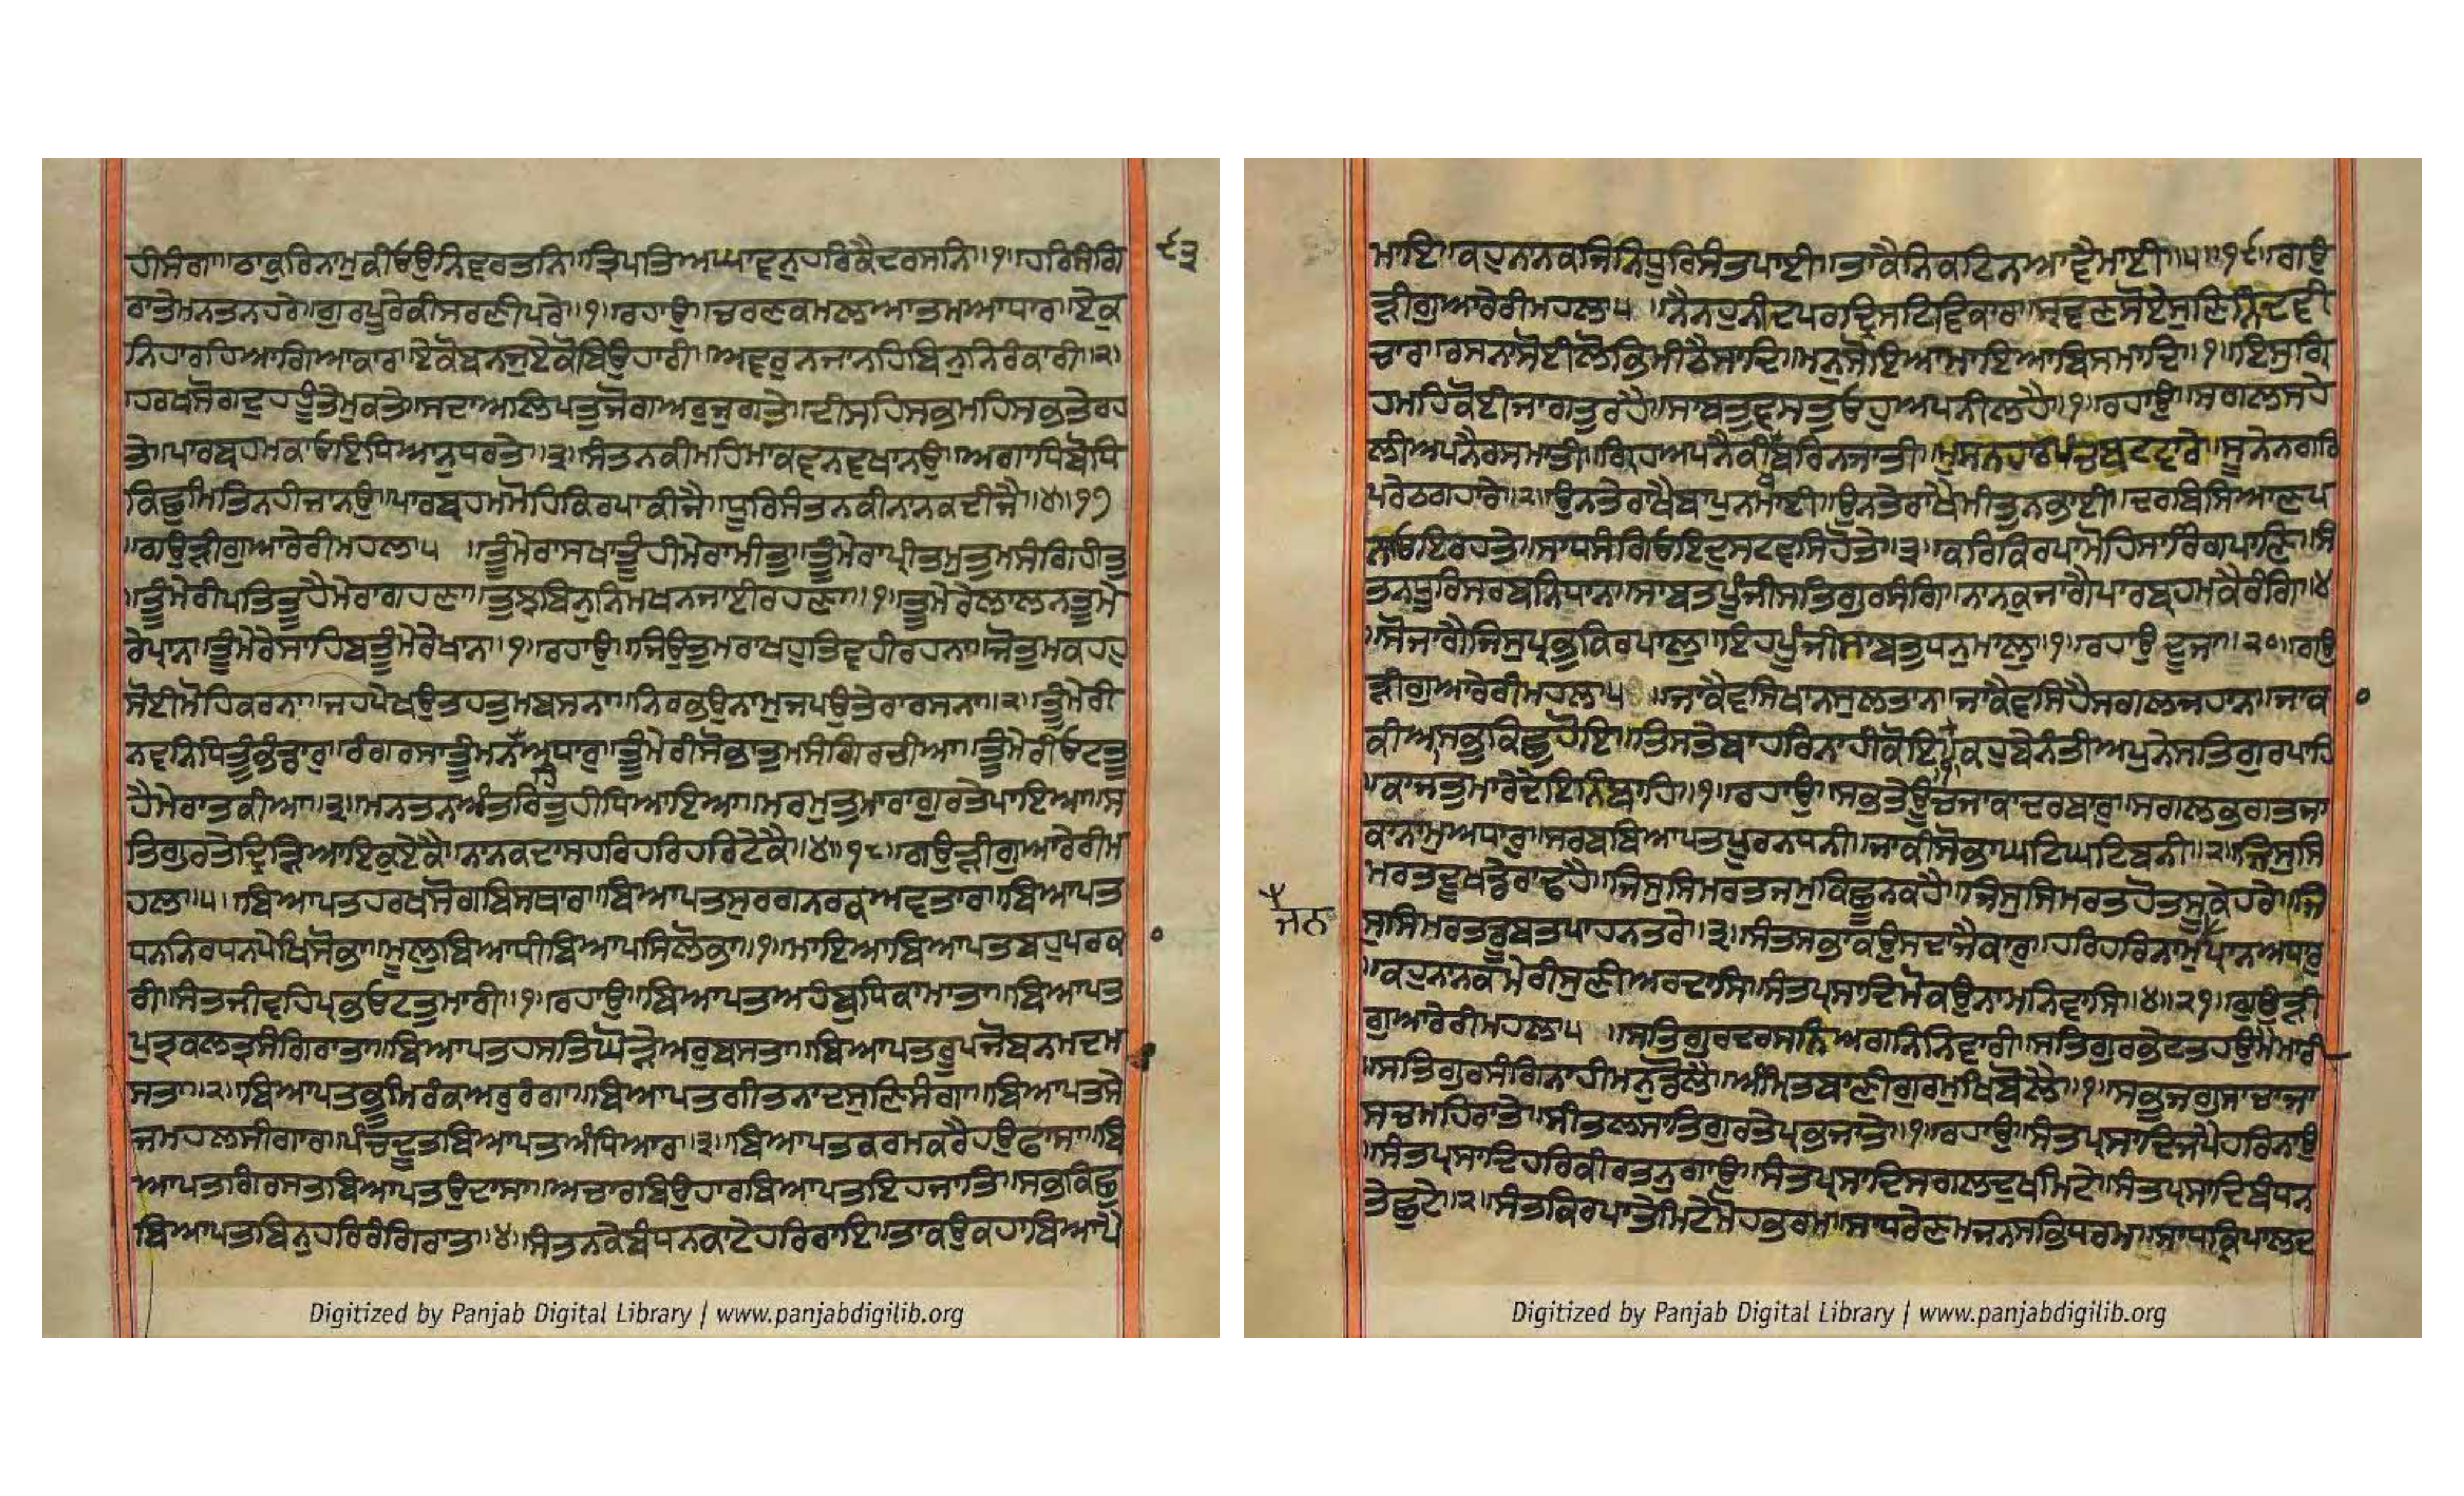 ਹੀਸੰਗਾ॥ਠਾਕੁਰਿਨਾਮੁਕੀਓਉਨਿਵਰਤਨਿ॥ਤ੍ਰਿਪਤਿਅਘਾਵਨੁਹਰਿਕੈਦਰਸਨਿ॥੧॥ਹਰਿਸੰਗਿ
ਰਾਤੇਮਨਤਨਹਰੇ॥ਗੁਰਪੂਰੇਕੀਸਰਣੀਪਰੇ॥੧॥ਰਹਾਉ॥ਚਰਣਕਮਲਆਤਮਆਧਾਰ॥ਏਕੁ
ਨਿਹਾਰਹਿਆਗਿਆਕਾਰ॥ਏਕੋਬਨਜੁਏਕੋਬਿਉਹਾਰੀ॥ਅਵਰੁਨਜਾਨਹਿਬਿਨੁਨਿਰੰਕਾਰੀ॥੨॥
ਹਰਖਸੋਗਦੁਹਹੂੰਤੇਮੁਕਤੇ॥ਸਦਾਅਲਿਪਤੁਜੋਗਅਰੁਜੁਗਤੇ॥ਦੀਸਹਿਸਭਮਹਿਸਭਤੇਰਹ
ਤੇ॥ਪਾਰਬ੍ਰਹਮਕਾਓਇਧਿਆਨੁਧਰਤੇ॥੩॥ਸੰਤਨਕੀਮਹਿਮਾਕਵਨਵਖਾਨਉ॥ਅਗਾਧਿਬੋਧਿ
ਕਿਛੁਮਿਤਿਨਹੀਜਾਨਉ॥ਪਾਰਬ੍ਰਹਮਮੋਹਿਕਿਰਪਾਕੀਜੈ॥ਧੂਰਿਸੰਤਨਕੀਨਾਨਕਦੀਜੈ॥੪॥੧੭
॥ਗਉੜੀਗੁਆਰੇਰੀਮਹਲਾ੫ ॥ਤੂੰਮੇਰਾਸਖਾਤੂੰਹੀਮੇਰਾਮੀਤੁ॥ਤੂੰਮੇਰਾਪ੍ਰੀਤਮੁਤੁਮਸੰਗਿਹੀਤੁ
॥ਤੂੰਮੇਰੀਪਤਿਤੂਹੈਮੇਰਾਗਹਣਾ॥ਤੁਝਬਿਨੁਨਿਮਖਨਜਾਈਰਹਣਾ॥੧॥ਤੂੰਮੇਰੇਲਾਲਨਤੂੰਮੇ
ਰੇਪ੍ਰਾਨ॥ਤੂੰਮੇਰੇਸਾਹਿਬਤੂੰਮੇਰੇਖਾਨ॥੧॥ਰਹਾਉ॥ਜਿਉਤੁਮਰਾਖਹੁਤਿਵਹੀਰਹਨਾ॥ਜੋਤੁਮਕਹਹੁ
ਸੋਈਮੋਹਿਕਰਨਾ॥ਜਹਪੇਖਉਤਹਤੁਮਬਸਨਾ॥ਨਿਰਭਉਨਾਮੁਜਪਉਤੇਰਾਰਸਨਾ॥੨॥ਤੂੰਮੇਰੀ
ਨਵਨਿਧਿਤੂੰਭੰਡਾਰੁ॥ਰੰਗਰਸਾਤੂੰਮਨਹਅਧਾਰੁ॥ਤੂੰਮੇਰੀਸੋਭਾਤੁਮਸੰਗਿਰਚੀਆ॥ਤੂੰਮੇਰੀਓਟਤੂ
ਹੈਮੇਰਾਤਕੀਆ॥੩॥ਮਨਤਨਅੰਤਰਿਤੁਹੀਧਿਆਇਆ॥ਮਰਮੁਤੁਮਾਰਾਗੁਰਤੇਪਾਇਆ॥ਸ
ਤਿਗੁਰਤੇਦ੍ਰਿੜਿਆਇਕੁਏਕੈ॥ਨਾਨਕਦਾਸਹਰਿਹਰਿਹਰਿਟੇਕੈ॥੪॥੧੮॥ਗਉੜੀਗੁਆਰੇਰੀਮ
ਹਲਾ੫॥ਬਿਆਪਤਹਰਖਸੋਗਬਿਸਥਾਰ॥ਬਿਆਪਤਸੁਰਗਨਰਕਅਵਤਾਰ॥ਬਿਆਪਤ
ਧਨਨਿਰਧਨਪੇਖਿਸੋਭਾ॥ਮੂਲੁਬਿਆਧੀਬਿਆਪਸਿਲੋਭਾ॥੧॥ਮਾਇਆਬਿਆਪਤਬਹੁਪਰਕਾ
ਰੀ॥ਸੰਤਜੀਵਹਿਪ੍ਰਭਓਟਤੁਮਾਰੀ॥੧॥ਰਹਾਉ॥ਬਿਆਪਤਅਹੰਬੁਧਿਕਾਮਾਤਾ॥ਬਿਆਪਤ
ਪੁਤ੍ਰਕਲਤ੍ਰਸੰਗਿਰਾਤਾ॥ਬਿਆਪਤਹਸਤਿਘੋੜੇਅਰੁਬਸਤਾ॥ਬਿਆਪਤਰੂਪਜੋਬਨਮਦਮ
ਸਤਾ॥੨॥ਬਿਆਪਤਭੂਮਿਰੰਕਅਰੁਰੰਗਾ॥ਬਿਆਪਤਗੀਤਨਾਦਸੁਣਿਸੰਗਾ॥ਬਿਆਪਤਸੇ
ਜਮਹਲਸੀਗਾਰ॥ਪੰਚਦੂਤਬਿਆਪਤਅੰਧਿਆਰ॥੩॥ਬਿਆਪਤਕਰਮਕਰੈਹਉਫਾਸਾ॥ਬਿ
ਆਪਤਗਿਰਸਤਬਿਆਪਤਉਦਾਸਾ॥ਅਚਾਰਬਿਉਹਾਰਬਿਆਪਤਇਹਜਾਤਿ॥ਸਭਕਿਛੁ
ਬਿਆਪਤਬਿਨੁਹਰਿਰੰਗਿਰਾਤ॥੪॥ਸੰਤਨਕੇਬੰਧਨਕਾਟੇਹਰਿਰਾਇ॥ਤਾਕਉਕਹਾਬਿਆਪੈ
੯੩
ਮਾਇ॥ਕਹੁਨਾਨਕਜਿਨਿਧੂਰਿਸੰਤਪਾਈ॥ਤਾਕੈਨਿਕਟਿਨਆਵੈਮਾਈ॥੫॥੧੯॥ਗਉ
ੜੀਗੁਆਰੇਰੀਮਹਲਾ੫ ॥ਨੈਨਹੁਨੀਦਪਰਦ੍ਰਿਸਟਿਵਿਕਾਰ॥ਸ੍ਰਵਣਸੋਏਸੁਣਿਨਿੰਦਵੀ
ਚਾਰ॥ਰਸਨਾਸੋਈਲੋਭਿਮੀਠੈਸਾਦਿ॥ਮਨੁਸੋਇਆਮਾਇਆਬਿਸਮਾਦਿ॥੧॥ਇਸੁਗ੍ਰਿ
ਹਮਹਿਕੋਈਜਾਗਤੁਰਹੈ॥ਸਾਬਤੁਵਸਤੁਓਹੁਅਪਨੀਲਹੈ॥੧॥ਰਹਾਉ॥ਸਗਲਸਹੇ
ਲੀਅਪਨੈਰਸਮਾਤੀ॥ਗ੍ਰਿਹਅਪਨੇਕੀਖਬਰਿਨਜਾਤੀ॥ਮੁਸਨਹਾਰਪੰਚਬਟਵਾਰੇ॥ਸੂਨੇਨਗਰਿ
ਪਰੇਠਗਹਾਰੇ॥੨॥ਉਨਤੇਰਾਖੈਬਾਪੁਨਮਾਈ॥ਉਨਤੇਰਾਖੈਮੀਤੁਨਭਾਈ॥ਦਰਬਿਸਿਆਣਪ
ਨਾਓਇਰਹਤੇ॥ਸਾਧਸੰਗਿਓਇਦੁਸਟਵਸਿਹੋਤੇ॥੩॥ਕਰਿਕਿਰਪਾਮੋਹਿਸਾਰਿੰਗਪਾਣਿ॥ਸੰ
ਤਨਧੂਰਿਸਰਬਨਿਧਾਨ॥ਸਾਬਤੁਪੂੰਜੀਸਤਿਗੁਰਸੰਗਿ॥ਨਾਨਕੁਜਾਗੈਪਾਰਬ੍ਰਹਮਕੈਰੰਗਿ॥੪
॥ਸੋਜਾਗੈਜਿਸੁਪ੍ਰਭੁਕਿਰਪਾਲੁ॥ਇਹਪੂੰਜੀਸਾਬਤੁਧਨੁਮਾਲੁ॥੧॥ਰਹਾਉਦੂਜਾ॥੨੦॥ਗਉ
ੜੀਗੁਆਰੇਰੀਮਹਲਾ੫ ॥ਜਾਕੈਵਸਿਖਾਨਸੁਲਤਾਨ॥ਜਾਕੈਵਸਿਹੈਸਗਲਜਹਾਨ॥ਜਾਕਾ
ਕੀਆਸਭੁਕਿਛੁਹੋਇ॥ਤਿਸਤੇਬਾਹਰਿਨਾਹੀਕੋਇ॥੧॥ਕਹੁਬੇਨੰਤੀਅਪੁਨੇਸਤਿਗੁਰਪਾਹਿ
॥ਕਾਜਤੁਮਾਰੇਦੇਇਨਿਬਾਹਿ॥੧॥ਰਹਾਉ॥ਸਭਤੇਊਚਜਾਕਾਦਰਬਾਰੁ॥ਸਗਲਭਗਤਜਾ
ਕਾਨਾਮੁਅਧਾਰੁ॥ਸਰਬਬਿਆਪਤਪੂਰਨਧਨੀ॥ਜਾਕੀਸੋਭਾਘਟਿਘਟਿਬਨੀ॥੨॥ਜਿਸੁਸਿ
ਮਰਤਦੁਖਡੇਰਾਢਹੈ॥ਜਿਸੁਸਿਮਰਤਜਮੁਕਿਛੂਨਕਹੈ॥ਜਿਸੁਸਿਮਰਤਹੋਤਸੂਕੇਹਰੇ॥ਜਿ
ਸੁਸਿਮਰਤਡੂਬਤਪਾਹਨਤਰੇ॥੩॥ਸੰਤਸਭਾਕਉਸਦਾਜੈਕਾਰੁ॥ਹਰਿਹਰਿਨਾਮੁਪ੍ਰਾਨਅਧਾਰੁ
ਜਨ
॥ਕਹੁਨਾਨਕਮੇਰੀਸੁਣੀਅਰਦਾਸਿ॥ਸੰਤਪ੍ਰਸਾਦਿਮੋਕਉਨਾਮਨਿਵਾਸਿ॥੪॥੨੧॥ਗਉੜੀ
ਗੁਆਰੇਰੀਮਹਲਾ੫ ॥ਸਤਿਗੁਰਦਰਸਨਿਅਗਨਿਨਿਵਾਰੀ॥ਸਤਿਗੁਰਭੇਟਤਹਉਮੈਮਾਰੀ
॥ਸਤਿਗੁਰਸੰਗਿਨਾਹੀਮਨੁਡੋਲੈ॥ਅੰਮ੍ਰਿਤਬਾਣੀਗੁਰਮੁਖਿਬੋਲੈ॥੧॥ਸਭੁਜਗੁਸਾਚਾਜਾ
ਸਚਮਹਿਰਾਤੇ॥ਸੀਤਲਸਾਤਿਗੁਰਤੇਪ੍ਰਭਜਾਤੇ॥੧॥ਰਹਾਉ॥ਸੰਤਪ੍ਰਸਾਦਿਜਪੈਹਰਿਨਾਉ
॥ਸੰਤਪ੍ਰਸਾਦਿਹਰਿਕੀਰਤਨੁਗਾਉ॥ਸੰਤਪ੍ਰਸਾਦਿਸਗਲਦੁਖਮਿਟੇ॥ਸੰਤਪ੍ਰਸਾਦਿਬੰਧਨ
ਤੇਛੁਟੇ॥੨॥ਸੰਤਕਿਰਪਾਤੇਮਿਟੇਮੋਹਭਰਮ॥ਸਾਧਰੇਣਮਜਨਸਭਿਧਰਮ॥ਸਾਧਕ੍ਰਿਪਾਲਦ
Digitized by Panjab Digital Library | www.panjabdigilib.org
Digitized by Panjab Digital Library | www.panjabdigilib.org